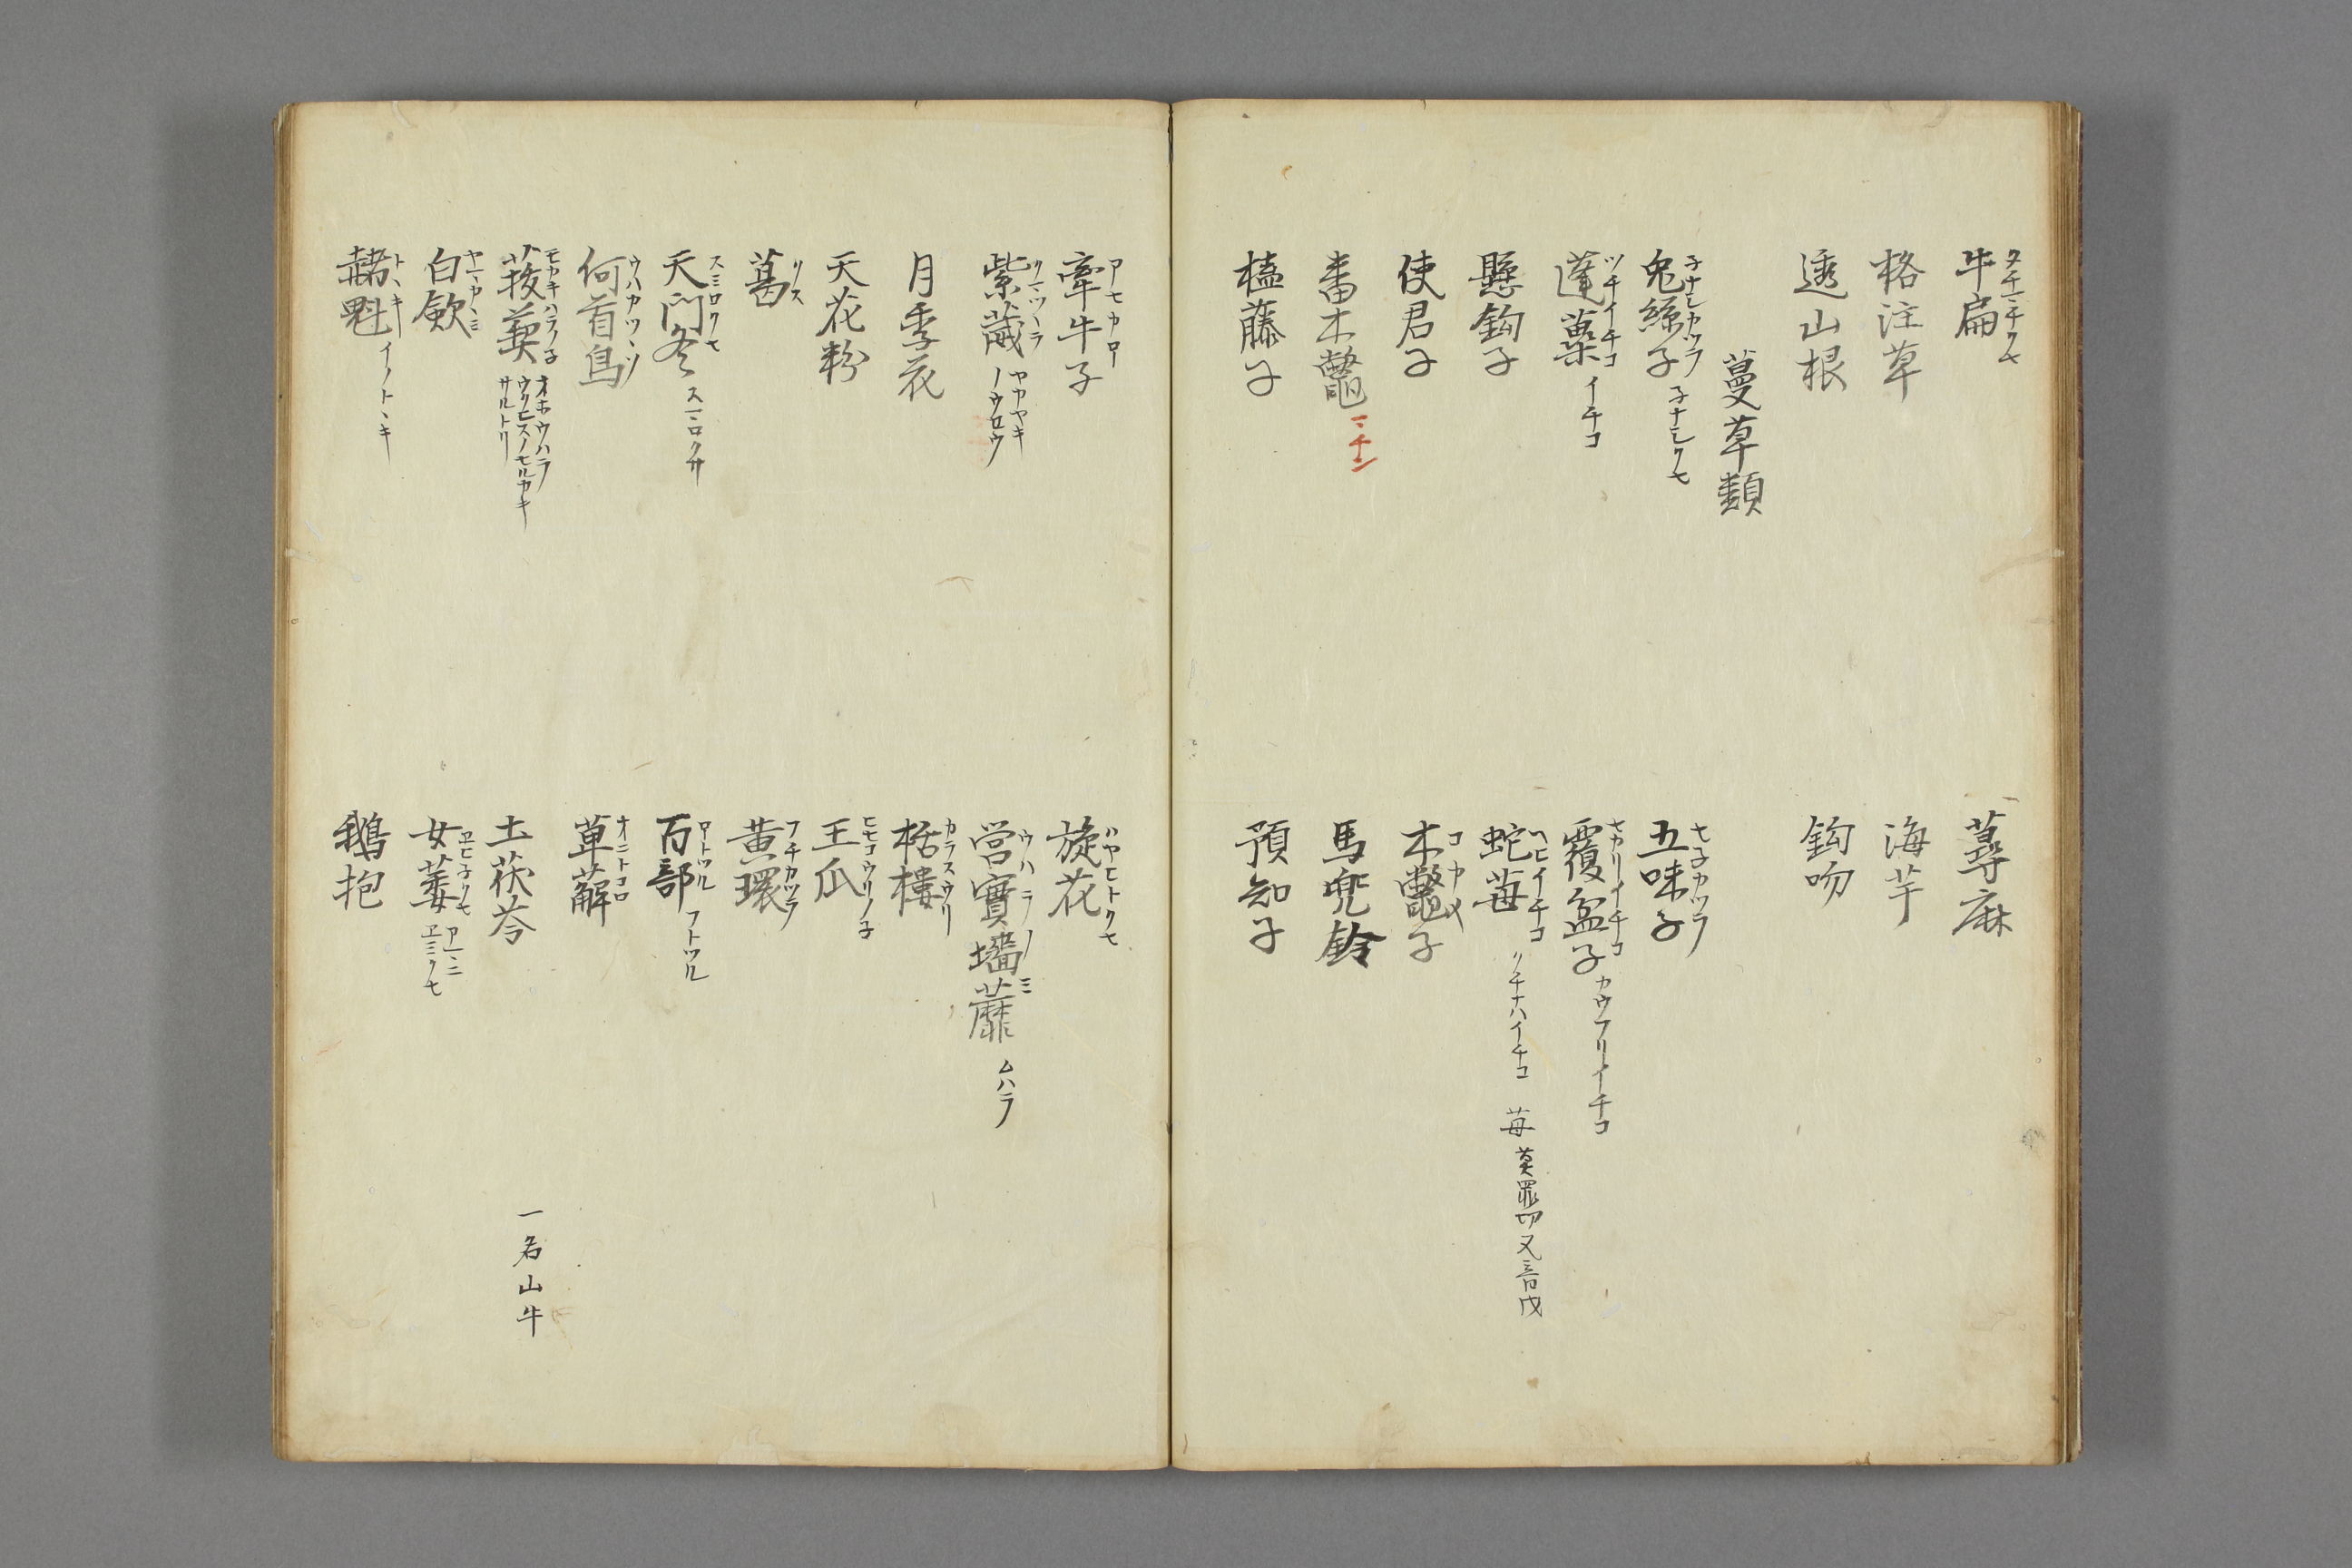 牛扁 タチマチクサ
蕁麻
格注草
海芋
透山根
鈎吻
蔓草類
兔絲子 子ナシカツラ 子ナシクサ
五味子 サ子カツラ
蓬蘽 ツチイチコ イチコ
覆盆子 セカリイチコ カウフリイチコ
懸鈎子
蛇苺 ヘヒイチコ クチナハイチコ 苺 莫罪切又音戊
使君子
木鼈子
番木鼈 マチン
馬兜鈴
榼藤子
預知子
牽牛子 アサカホ
旋花 ハヤヒトクサ
紫葳 ノウロウ
営實墻蘼 ウハラノミ ムハラ
月季花
栝樓 カラスウリ
天花粉
王瓜 ヒサコウリノ子
葛 クス
黄環 フチカツラ
天門冬 スミロクサ スマロクサ
百部 ホトツル フトツル
何首烏
萆薢 オニトコロ
菝葜 オホウハラ ウクヒスノサルカキ サルトリ
土茯苓 一名山牛
白歛 ヤマカヽミ
女萎 ヱミクサ
赭魁 イノトヽキ
鵝抱